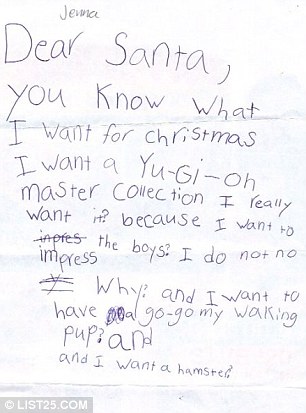 Jenna
Dear Santa,
you know what
I want for christmas
I want a Yu-Gi-oh
master collection I really
want it? because I want to
inpres the boys? I do not no
impress
y Why? and I want to
have a go-go my waking
pup? and
and I want a hamster?
© LIST25.COM